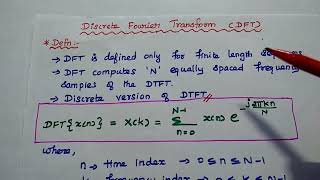 Discrete Fourier Transform (DFT)
* Defn:-
→ DFT is defined only for finite length
→ DFT computes 'N' equally spaced frequency
samples of the DTFT.
→ Discrete version of DTFT
DFT{x(n)} = X(k) = N-1 Σ n=0 x(n) e^-j2πkn/N
where,
n → time index → 0 ≤ n ≤ N-1
frequency index → 0 ≤ N-1